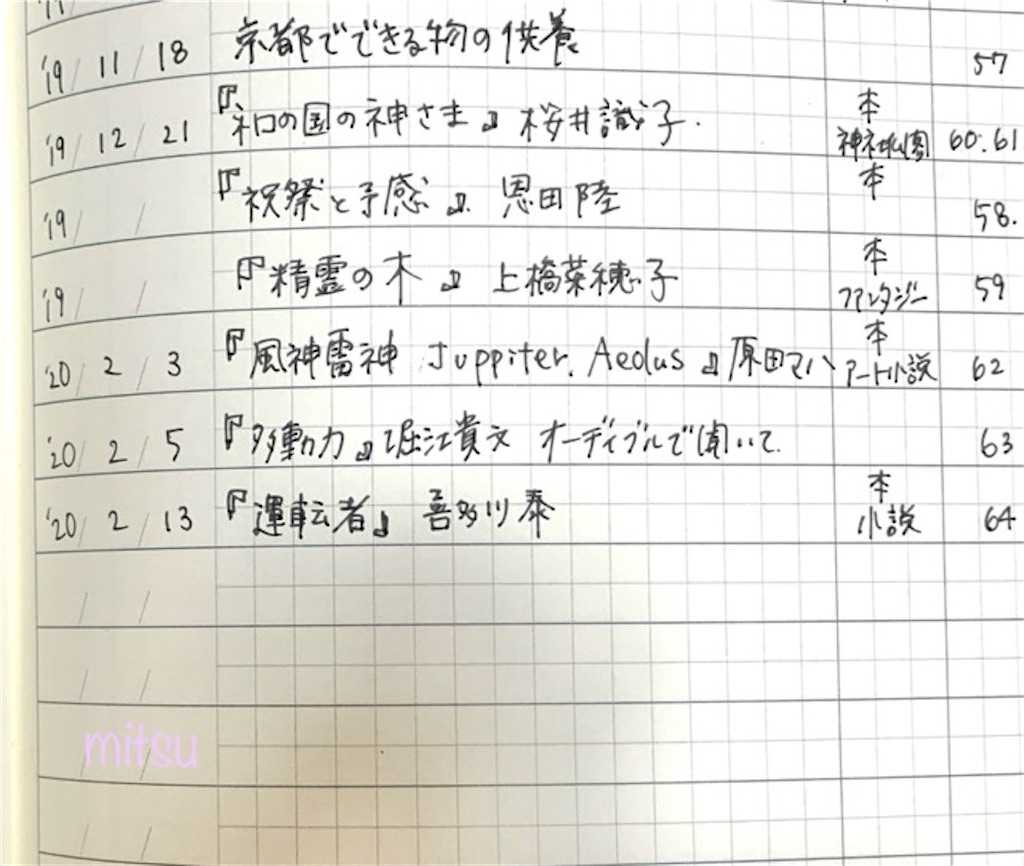 '19/11/18 京都でできる物の供養 57
本
'19/12/21 『和の国の神さま』 桜井識子. 神社仏閣 60.61
本
'19/ / 『祝祭と予感』 恩田陸 58.
本
'19/ / 『精霊の木』 上橋菜穂子 ファンタジー 59
本
'20/2/3 『風神雷神 Juppiter, Aeolus』原田マハ アート小説 62
'20/2/5 『多動力』堀江貴文 オーディブルで聞いて 63
本
'20/2/13 『運転者』 喜多川泰 小説 64
mitsu